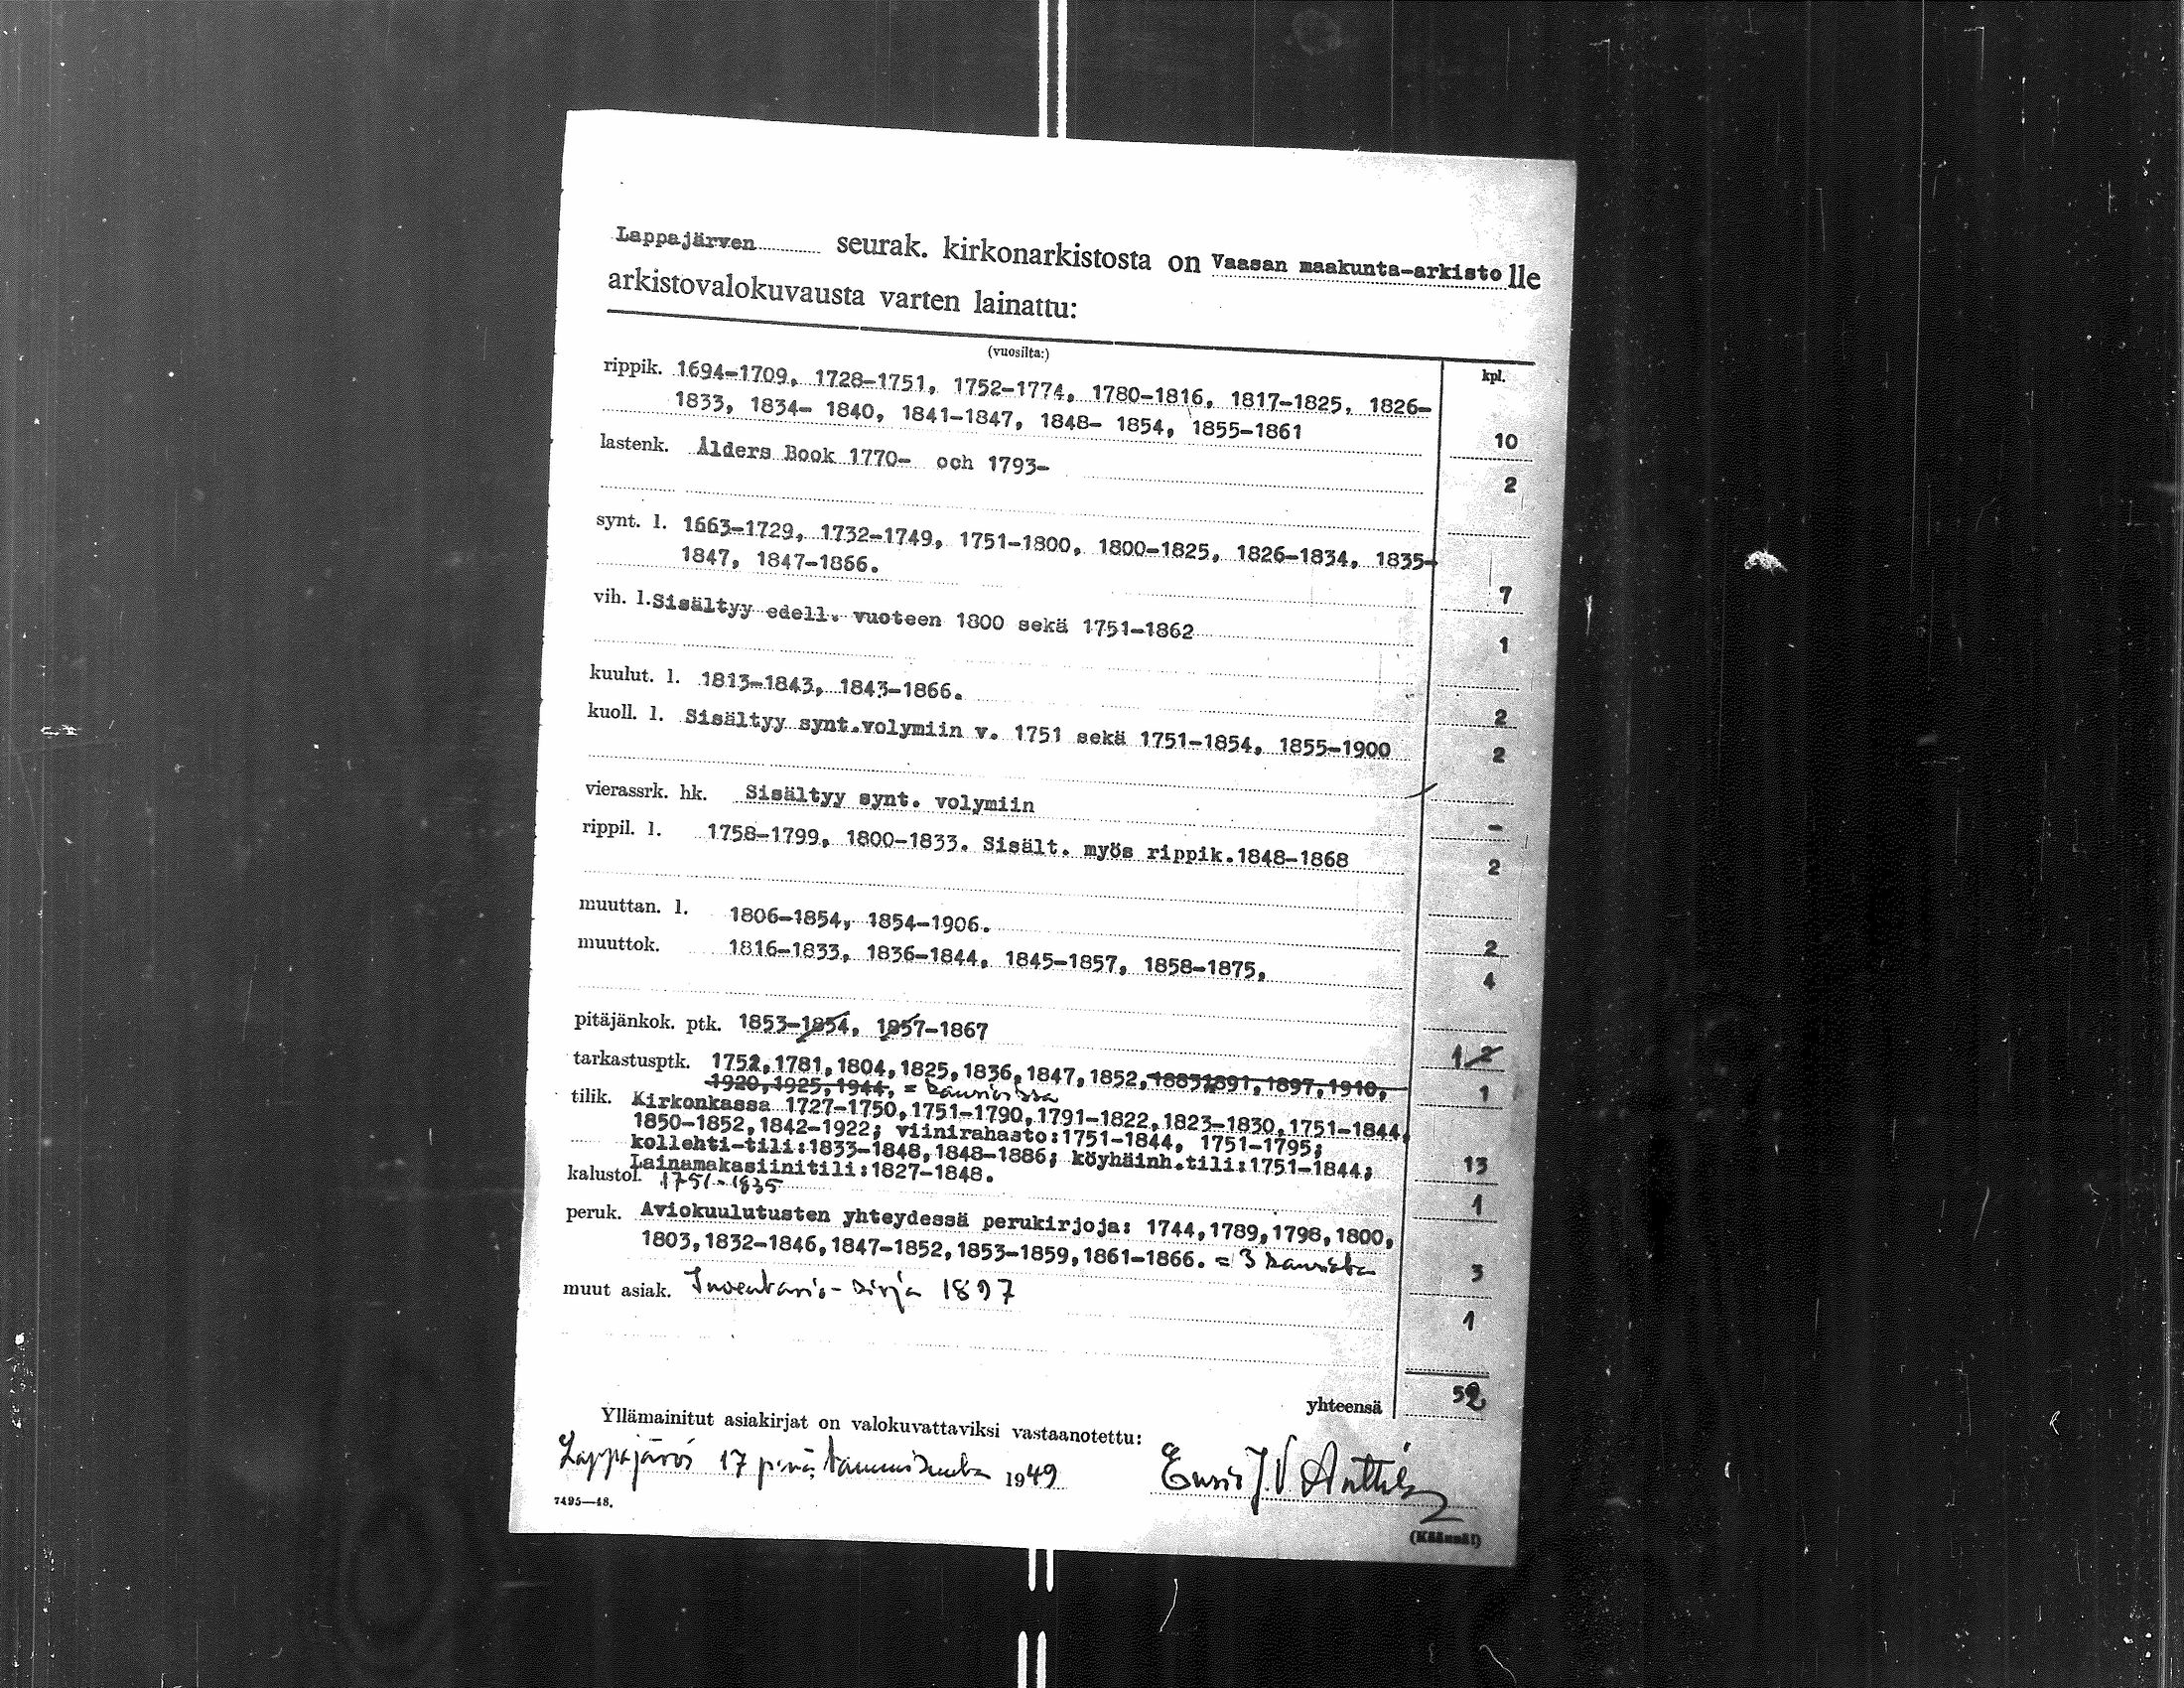 Lappajärven seurak. kirkonarkistosta on Vaasan maakunta-arkisto lle
arkistovalokuvausta varten lainattu:
(vuosilta:) kpl.
rippik. 1694-1709, 1728-1751, 1752-1774, 1780-1816, 1817-1825, 1826-
1833, 1834- 1840, 1841-1847, 1848- 1854, 1855-1861 10
lastenk. Ålders Book 1770- och 1793- 2
synt. l. 1663-1729, 1732-1749, 1751-1800, 1800-1825, 1826-1834, 1835-
1847, 1847-1866. 7
vih. l. Sisältyy edell. vuoteen 1800 sekä 1751-1862 1
kuulut. l. 1813-1843, 1843-1866. 2
kuoll. l. Sisältyy synt.volymiin v. 1751 sekä 1751-1854, 1855-1900 2
vierassrk. hk. Sisältyy synt. volymiin -
rippil. l. 1758-1799, 1800-1833. Sisält. myös rippik.1848-1868 2
muuttan. l. 1806-1854, 1854-1906. 2
muuttok. 1816-1833, 1836-1844, 1845-1857, 1858-1875, 4
pitäjänkok. ptk. 1853-1854, 1857-1867 1 2
tarkastusptk. 1752,1781,1804,1825,1836,1847,1852,1885,1891,1897,1910,
1920,1925,1944, = kansiossa 1
tilik. Kirkonkassa 1727-1750,1751-1790,1791-1822,1823-1830,1751-1844,
1850-1852,1842-1922; viinirahasto:1751-1844, 1751-1795;
kollehti-tili:1833-1848,1848-1886; köyhäinh.tili:1751-1844; 13
Lainamakasiinitili:1827-1848.
kalustol. 1751-1835 1
peruk. Aviokuulutusten yhteydessä perukirjoja: 1744,1789,1798,1800,
1803,1832-1846,1847-1852,1853-1859,1861-1866. = 3 kansiota 3
muut asiak. Inventario-kirja 1897 1
yhteensä 52
Yllämainitut asiakirjat on valokuvattaviksi vastaanotettu:
Lappajärvi 17 p:nä tammikuuta 1949 J.V. Anttila
7495—48.
(Käännä!)